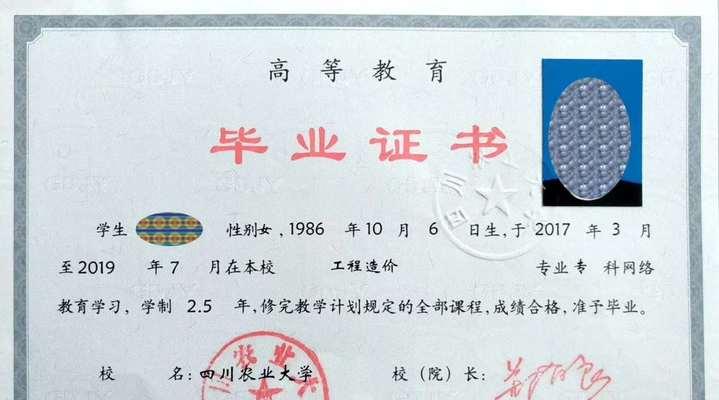 高等教育
毕业证书
学生 性别女，1986 年 10 月 6 日生，于 2017 年 3 月
至 2019 年 7 月在本校 工程造价 专业专 科网络
教育学习，学制 2.5 年，修完教学计划规定的全部课程，成绩合格，准予毕业。
校 名：四川农业大学 校（院）长：